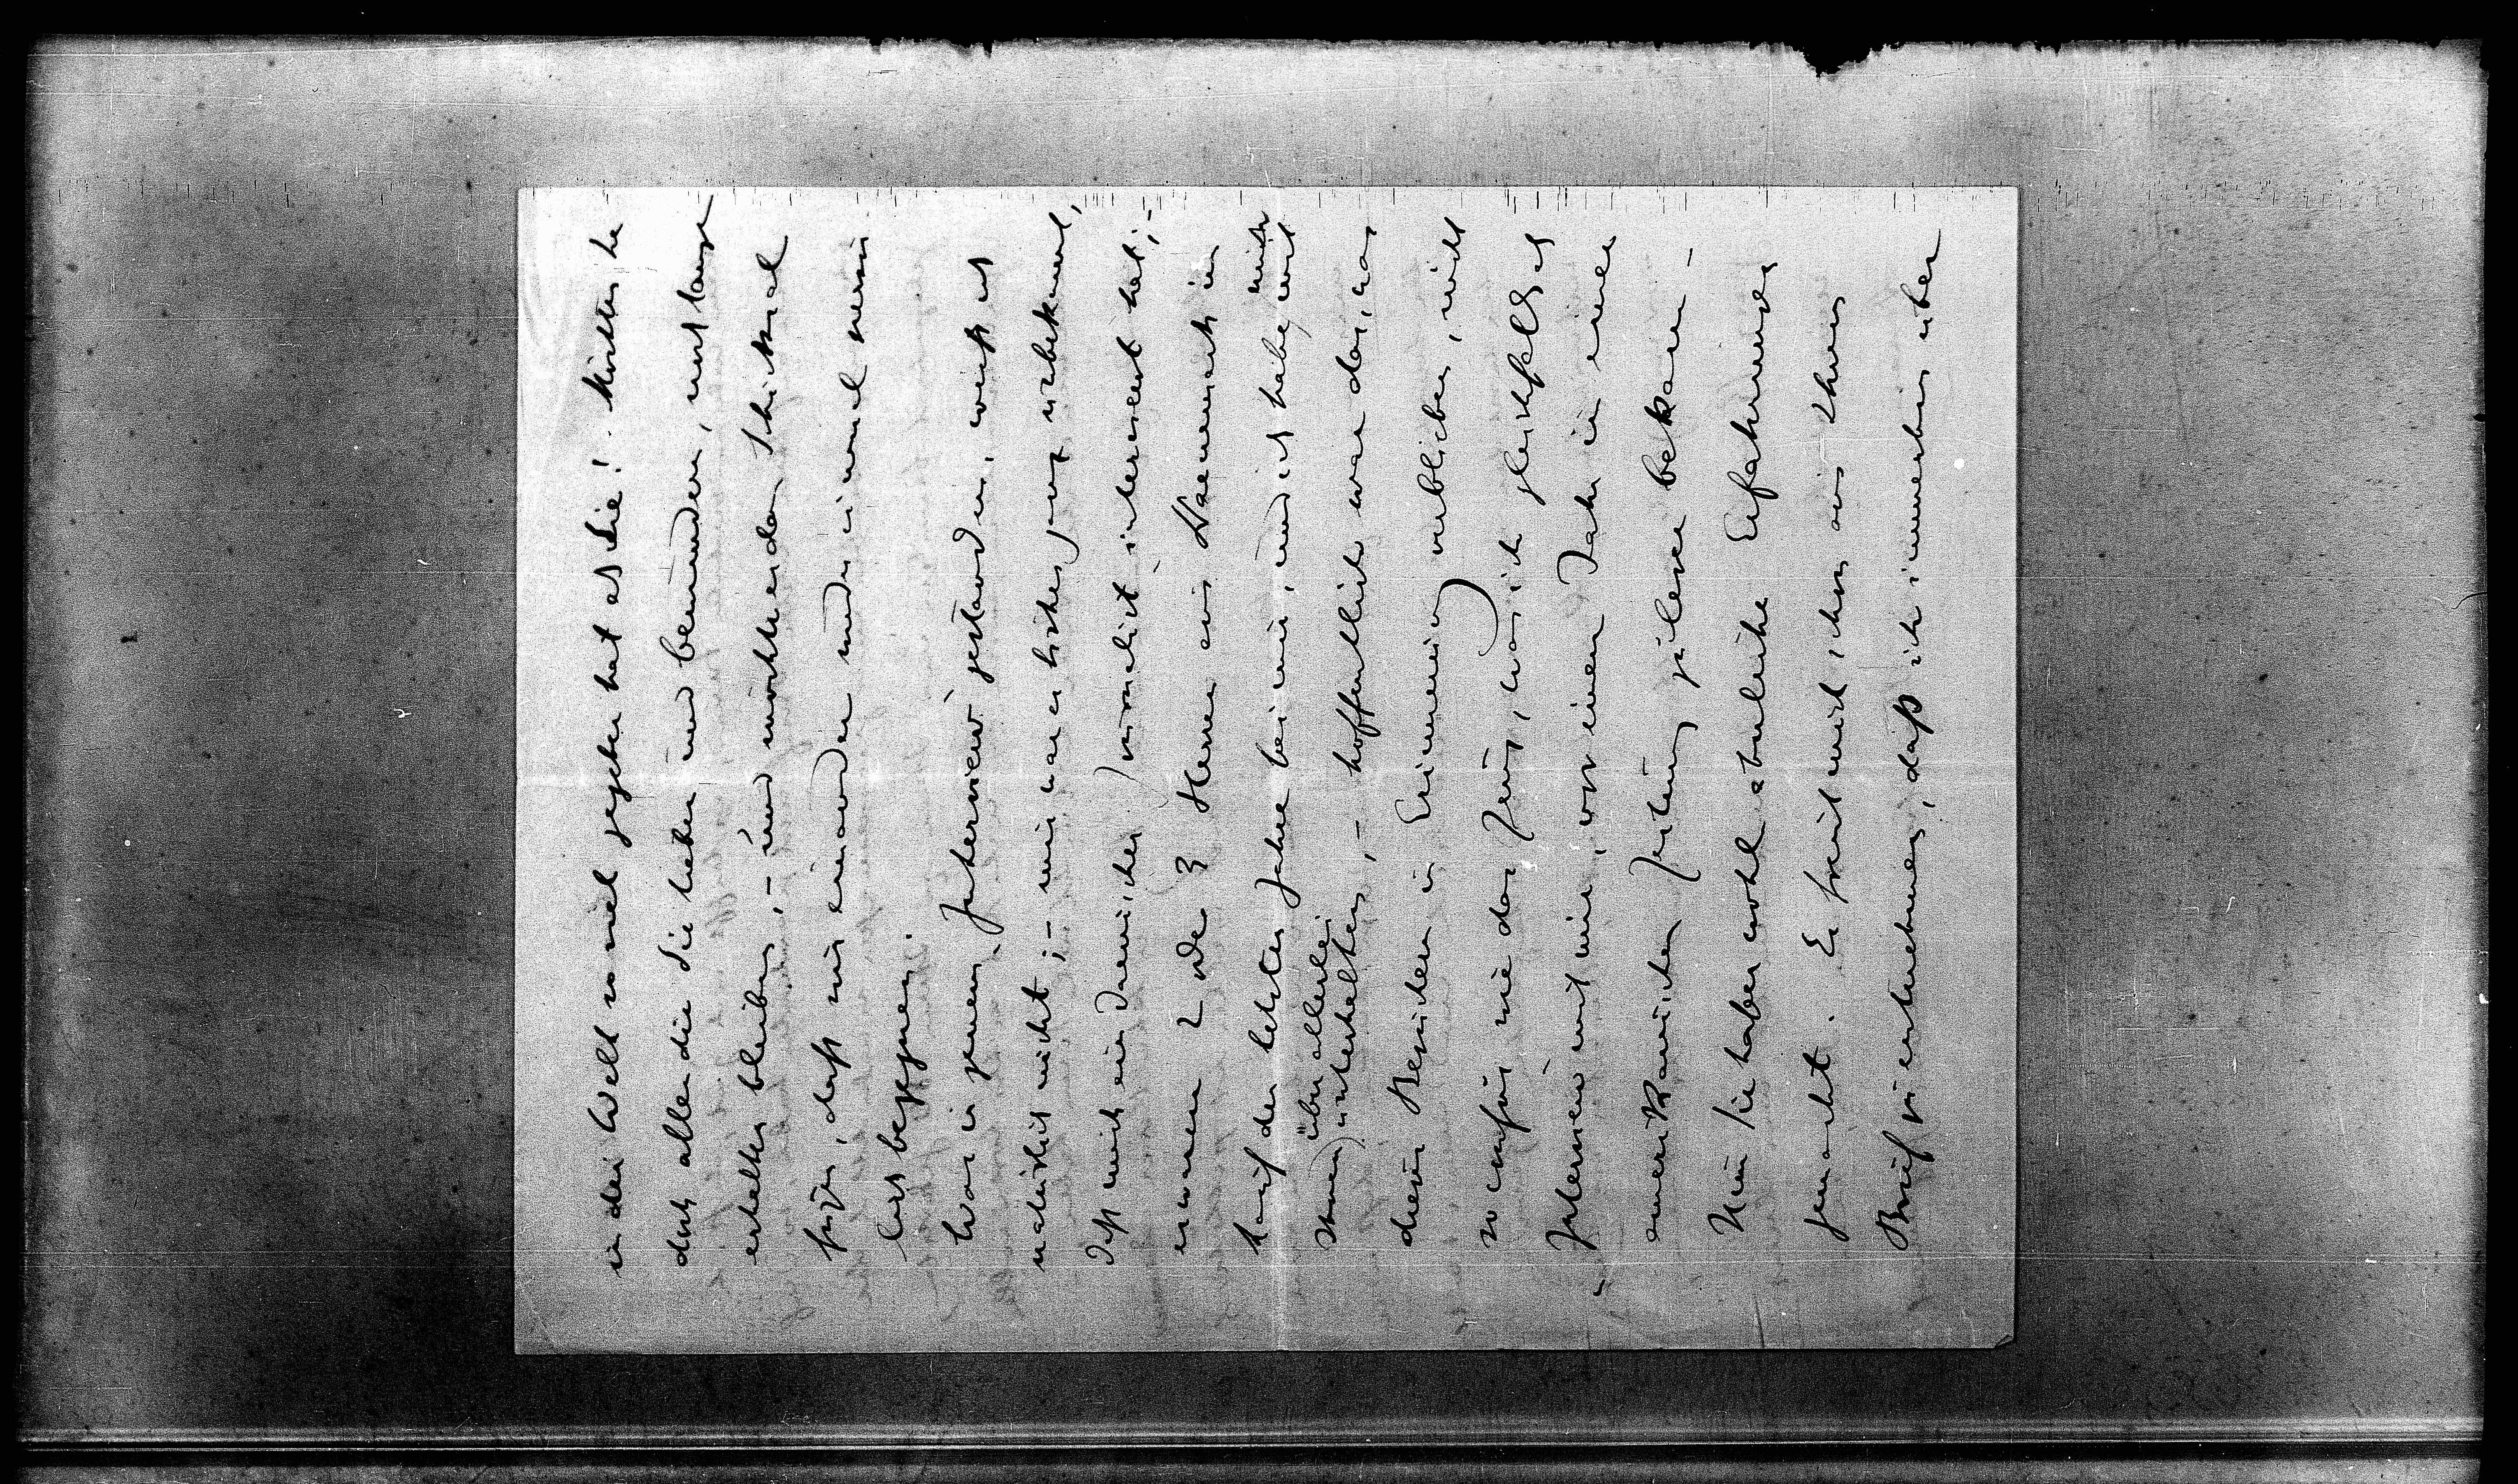 in der Welt so viel gegeben hat als Sie! Möchten Sie
doch allen die Sie lieben und bewundern, noch lange
erhalten bleiben, – und möchte es das Schicksal
fügen, dass wir einander wieder einmal persön-
lich begegnen.
Was in jenem „Interview" gestanden, weiss ich
natürlich nicht; – mir war es bisher ganz unbekannt,
dass mich ein Dänischer Journalist interviewt hat; –
es waren 2 oder 3 Herren aus Daenemark im
Lauf der letzten Jahre bei mir, und ich habe mich mit
ihnen über allerlei unterhalten, – hoffentlich war das, was
diesen Besuchern in Erinnerung verblieben, nicht
so confus wie das Zeug, was ich gleichfalls als
„Interview" mit mir, vor einem Jahr in einer
amerikanischen Zeitung zu lesen bekam –
Nun Sie haben wohl ähnliche Erfahrungen
gemacht. Es freut mich schon aus Ihrem
Brief zu entnehmen, daß ich immerhin über